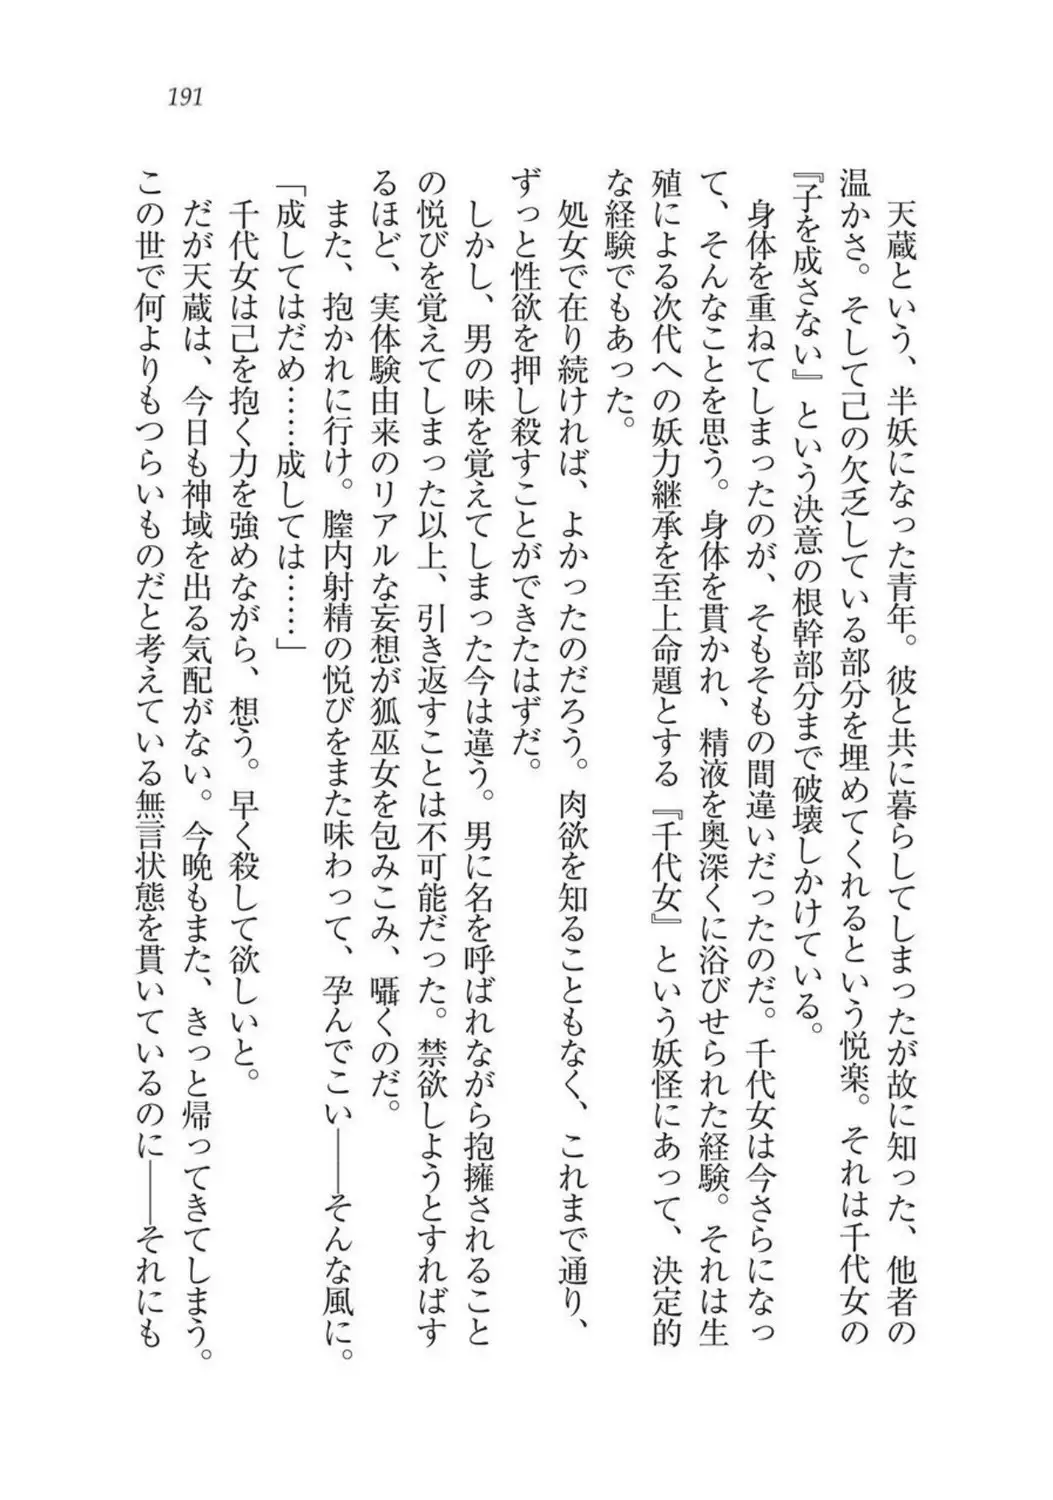 191
天蔵という、半妖になった青年。彼と共に暮らしてしまったが故に知った、他者の
温かさ。そして己の欠乏している部分を埋めてくれるという悦楽。それは千代女の
『子を成さない』という決意の根幹部分まで破壊しかけている。
身体を重ねてしまったのが、そもそもの間違いだったのだ。千代女は今さらになっ
て、そんなことを思う。身体を貫かれ、精液を奥深くに浴びせられた経験。それは生
殖による次代への妖力継承を至上命題とする『千代女』という妖怪にあって、決定的
な経験でもあった。
処女で在り続ければ、よかったのだろう。肉欲を知ることもなく、これまで通り、
ずっと性欲を押し殺すことができたはずだ。
しかし、男の味を覚えてしまった今は違う。男に名を呼ばれながら抱擁されること
の悦びを覚えてしまった以上、引き返すことは不可能だった。禁欲しようとすればす
るほど、実体験由来のリアルな妄想が狐巫女を包みこみ、囁くのだ。
また、抱かれに行け。膣内射精の悦びをまた味わって、孕んでこい――そんな風に。
「成してはだめ……成しては……」
千代女は己を抱く力を強めながら、想う。早く殺して欲しいと。
だが天蔵は、今日も神域を出る気配がない。今晩もまた、きっと帰ってきてしまう。
この世で何よりもつらいものだと考えている無言状態を貫いているのに――それにも